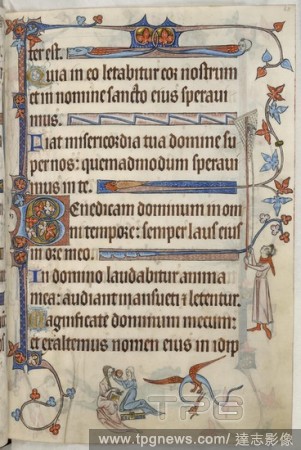 ter est.
Quia in eo letabitur cor nostrum
et in nomine sancto eius speraui
mus.
Fiat misericordia tua domine su
per nos: quemadmodum speraui
mus in te.
Benedicam dominum in om
ni tempore: semper laus eius
in ore meo.
In domino laudabitur anima
mea: audiant mansueti et letentur.
Magnificate dominum mecum:
et exaltemus nomen eius in idip
TPG
www.tpgnews.com/ 達志影像